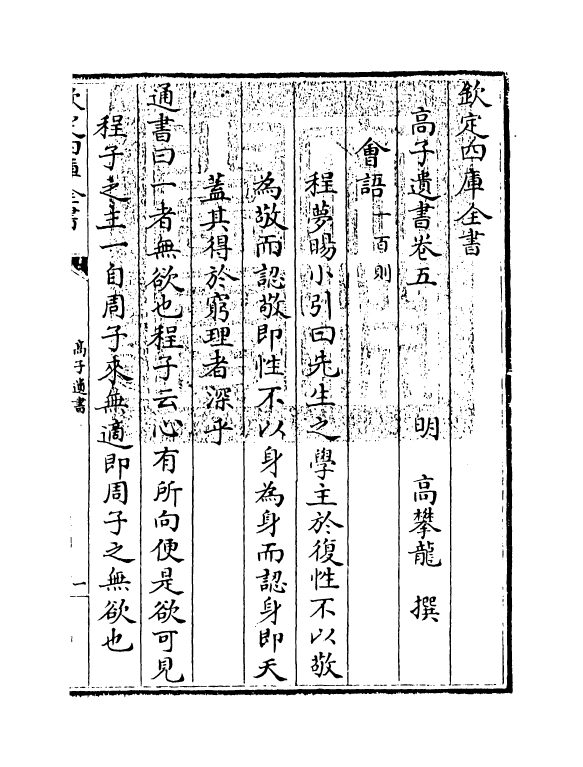 欽定四庫全書
高子遺書卷五
明 高攀龍 撰
會語一百則
程夢暘小引曰先生之學主於復性不以敬
為敬而認敬即性不以身為身而認身即天
蓋其得於窮理者深乎
通書曰一者無欲也程子云心有所向便是欲可見
程子之主一自周子來無適即周子之無欲也
欽定四庫全書
高子遺書
一